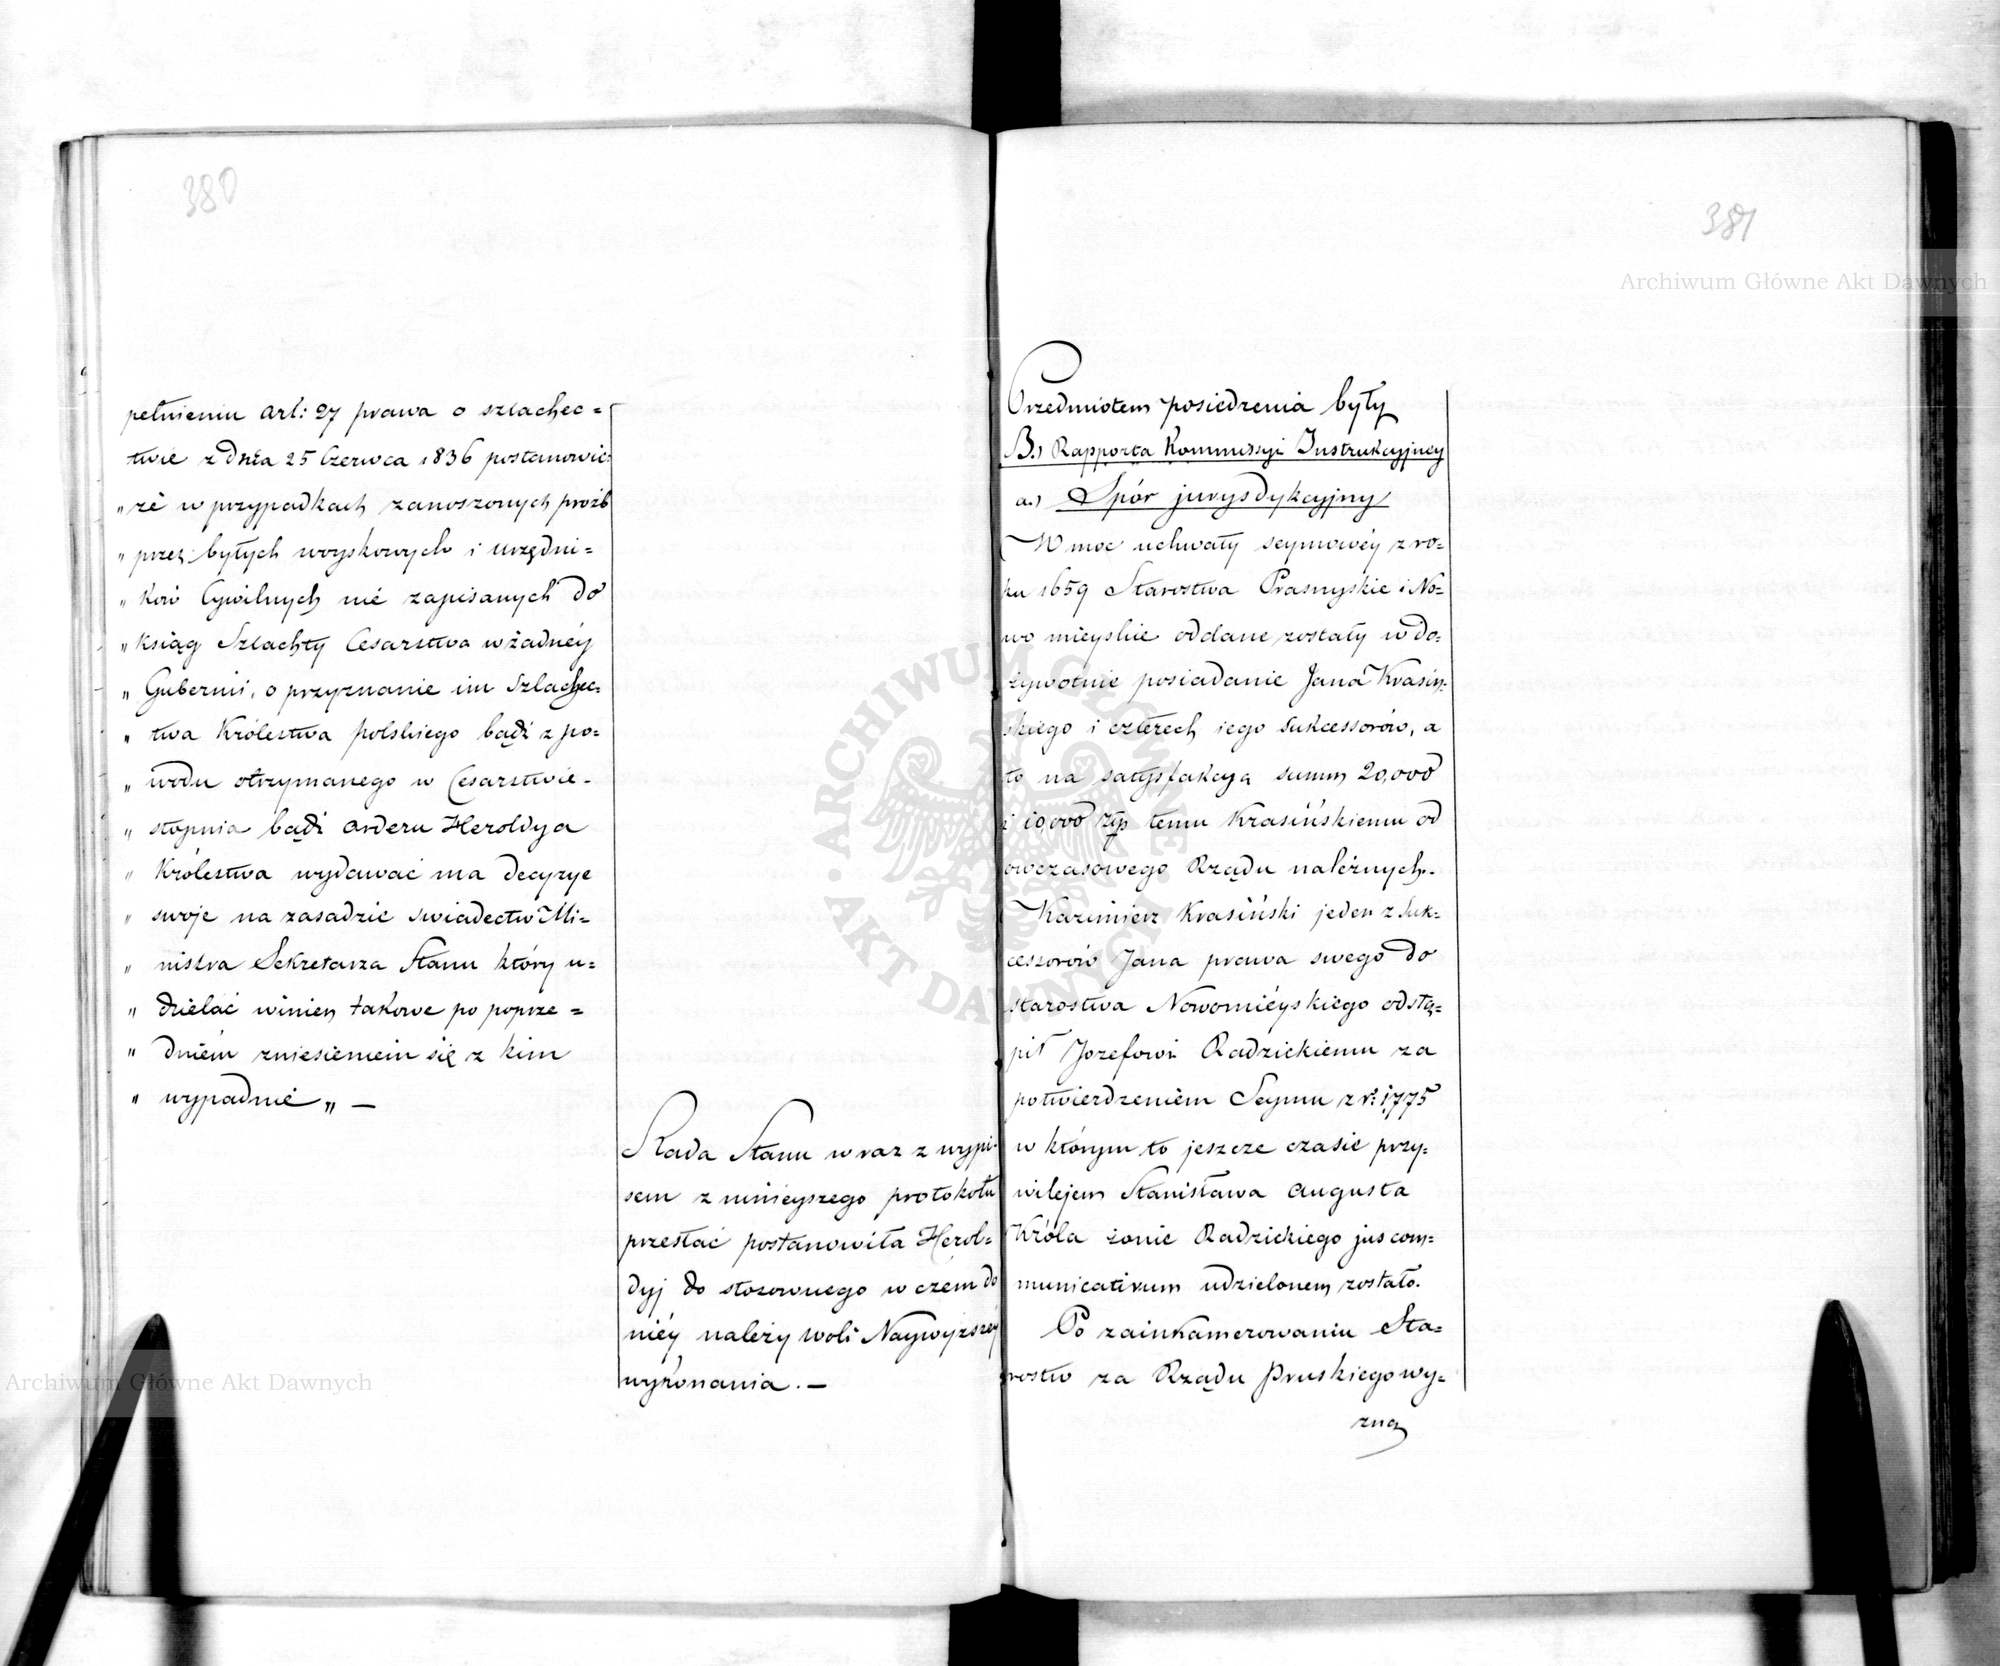 380
pełnieniu art: 27 prawa o szlachec=
twie z dnia 25 Czerwca 1836 postanowić:
„ że w przypadkach zanoszonych próźb
„ przez byłych woyskowych i urzędni=
„ ków Cywilnych nie zapisanych do
„ ksiąg Szlachty Cesarstwa w żadnéy
„ Gubernii, o przyznanie im Szlachec=
„ twa Królestwa polskiego bądź z po=
„ wodu otrzymanego w Cesarstwie=
„ stopnia bądź orderu Heroldya
„ Królestwa wydawać ma decyzye
„ swoje na zasadzie swiadectw Mi=
„ nistra Sekretarza Stanu który u=
„ dzielać winien takowe po poprze=
„ dniém zniesieniem się z kim
„ wypadnie „ —
Rada Stanu wraz z wypi=
sem z ninieyszego protokołu
przesłać postanowiła Herol=
dyj do stosownego w czém do
niéy należy woli Naywyższéy
wykonania. —
381
Przedmiotem posiedzenia były
B.) Rapporta Kommissyi Instrukcyjney
a.) Spór jurysdykcyjny
W moc uchwały seymowéy z ro=
ku 1659 Starostwa Prasnyskie i No=
wo mieyskie oddane zostały w do=
żywotnie posiadanie Jana Krasiń=
skiego i czterech iego sukcessorów, a
to na satysfakcyą summ 20,000
i 10,000 złp temu Krasińskiemu od
owczasowego Rządu należnych.
Kazimierz Krasiński jeden z suk=
cessorów Jana prawa swego do
starostwa Nowomiéyskiego odstą=
pił Jozefowi Radzickiemu za
potwierdzeniem Seymu z r: 1775
w którym to jeszcze czasie przy=
wilejem Stanisława Augusta
Króla żonie Radzickiego jus com=
municativum udzielonem zostało.
Po zainkamerowaniu Sta=
rostw za Rządu Pruskiego wy=
zna
Archiwum Główne Akt Dawnych
Archiwum Główne Akt Dawnych
ARCHIWUM GŁÓWNE · AKT DAWNYCH ·